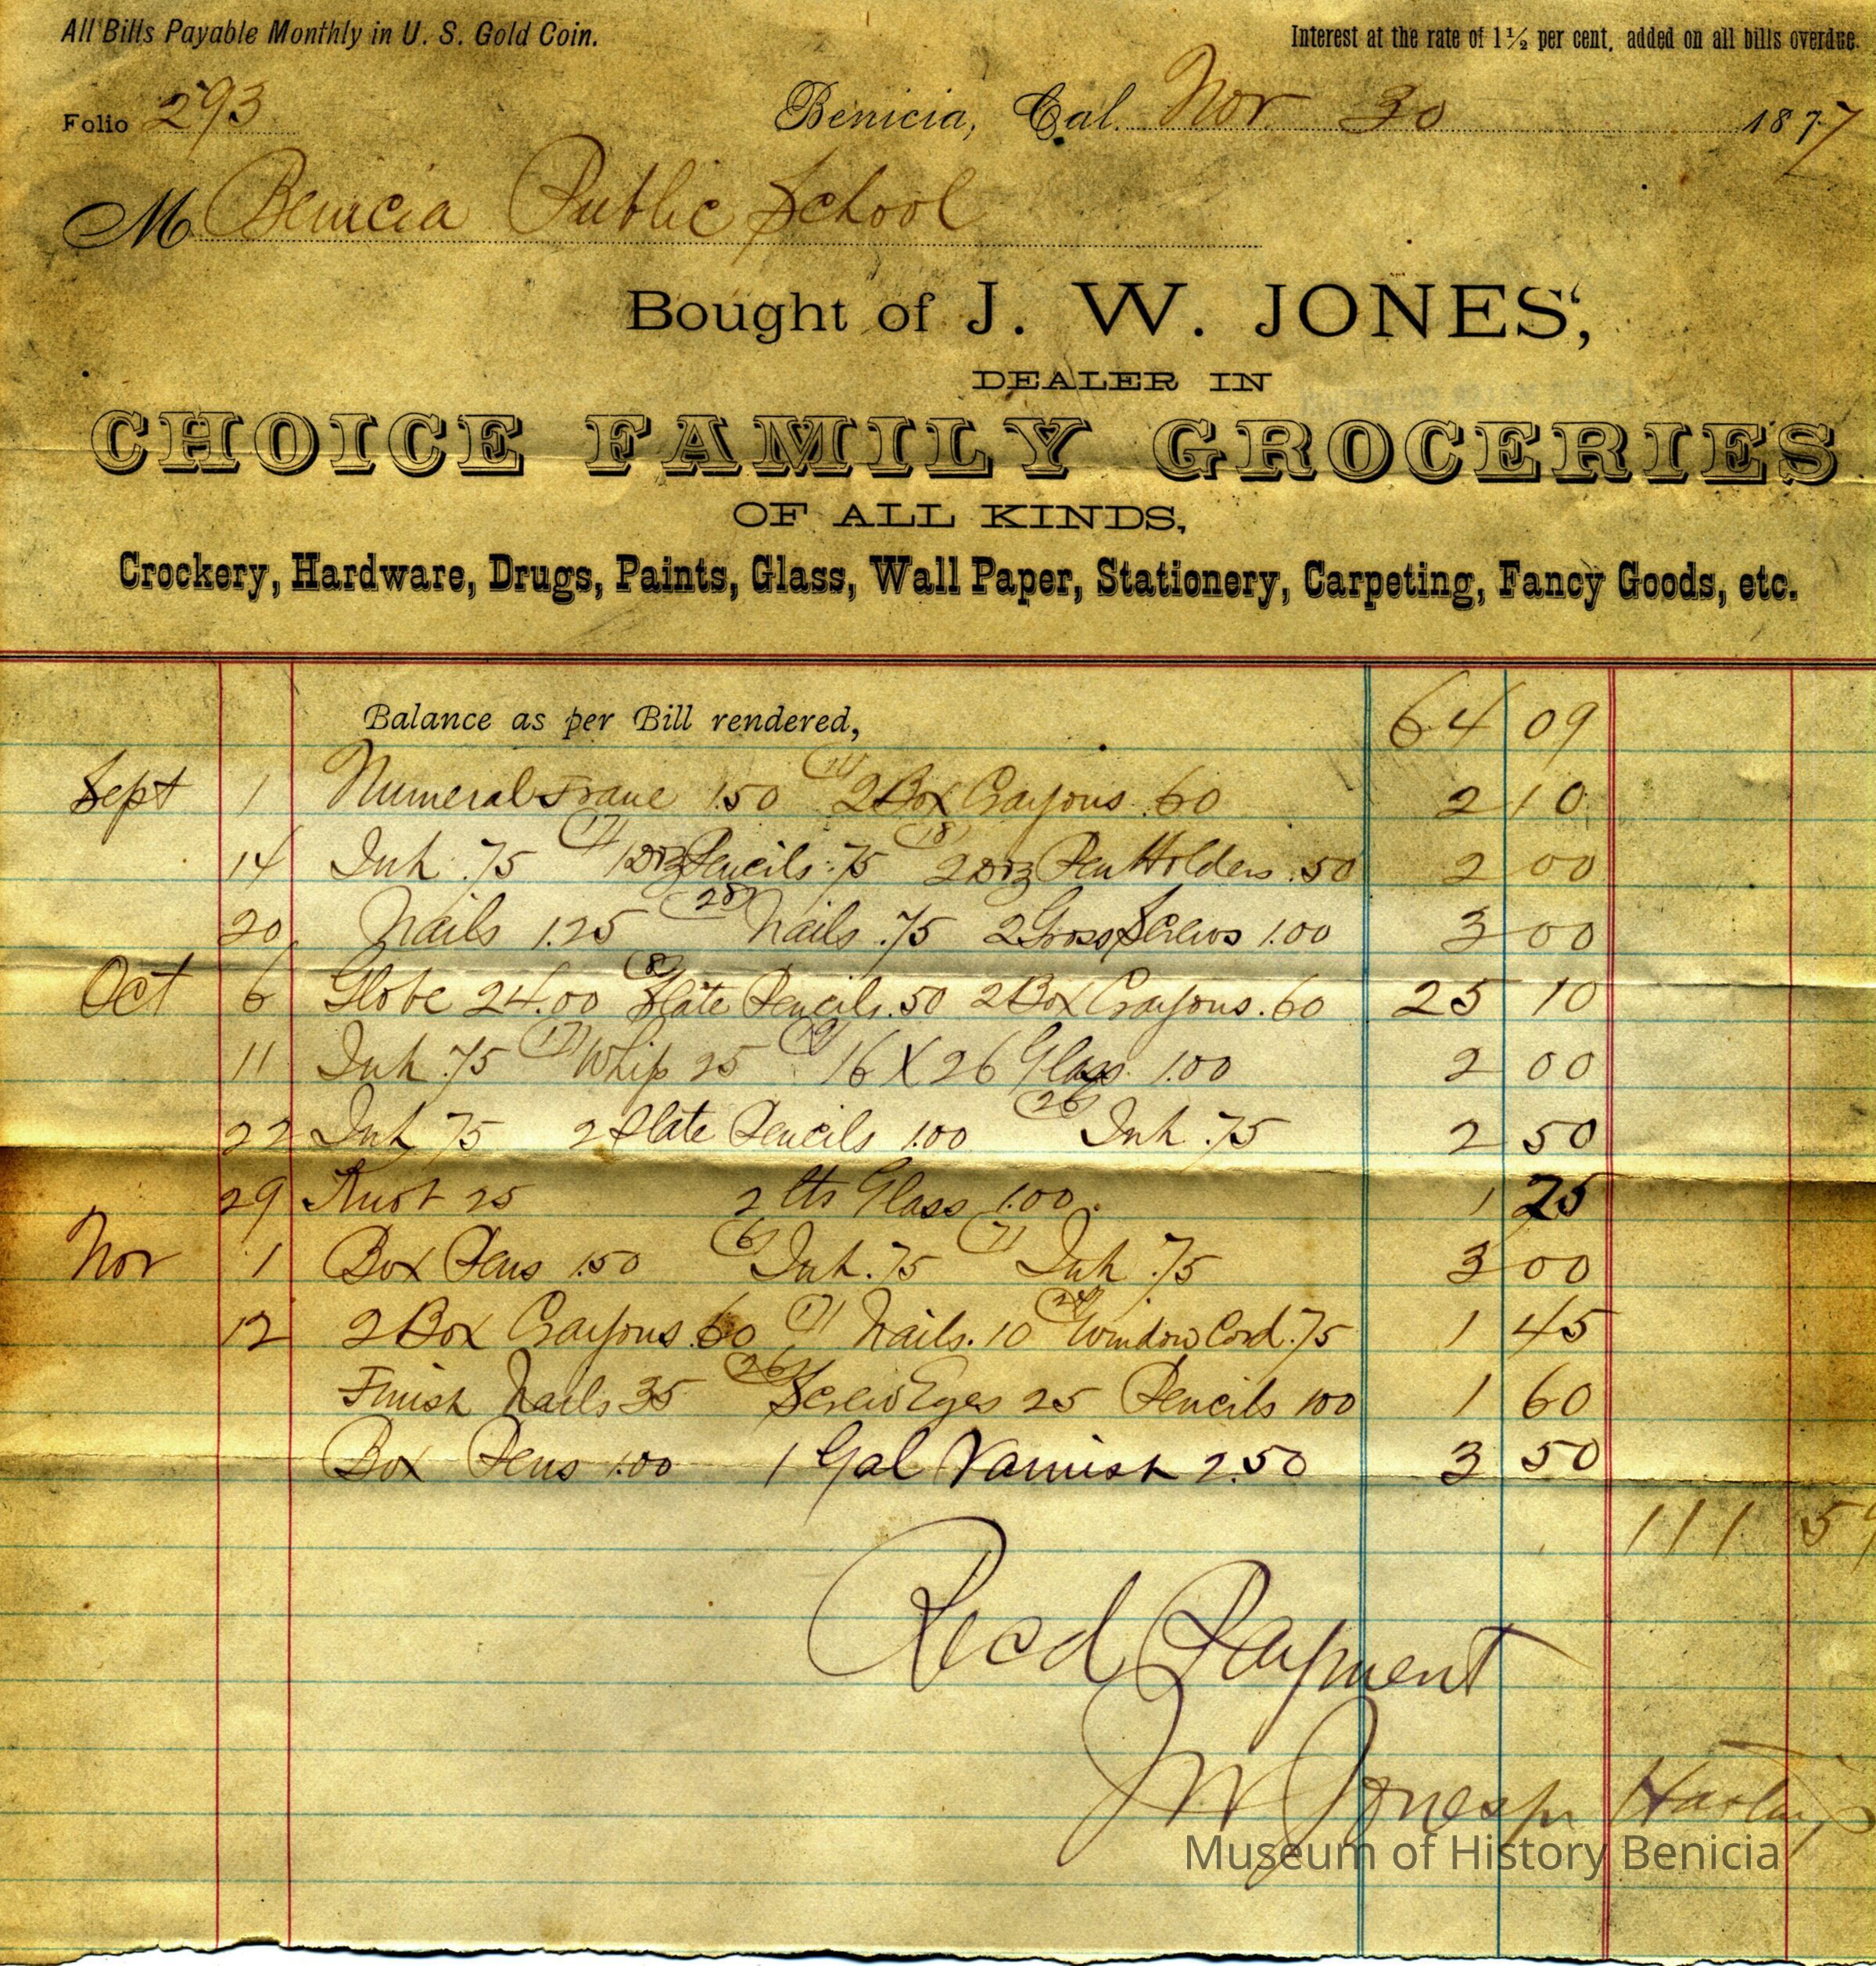 All Bills Payable Monthly in U. S. Gold Coin. Interest at the rate of 1½ per cent. added on all bills overdue.
Folio 293 Benicia, Cal. Nov 30 1877
M Benicia Public School
Bought of J. W. JONES,
DEALER IN
CHOICE FAMILY GROCERIES
OF ALL KINDS,
Crockery, Hardware, Drugs, Paints, Glass, Wall Paper, Stationery, Carpeting, Fancy Goods, etc.
Balance as per Bill rendered, 64 09
Sept 1 Numeral Frame 1.50 (11) 2 Box Crayons .60 2 10
14 Ink .75 (17) 1 Doz Pencils .75 (18) 2 Doz Pen Holders .50 2 00
20 Nails 1.25 (28) Nails .75 2 Gross Screws 1.00 3 00
Oct 6 Globe 24.00 (8) Slate Pencils .50 2 Box Crayons .60 25 10
11 Ink .75 (17) Whip 25 16 X 26 Glass 1.00 2 00
22 Ink 75 2 Slate Pencils 1.00 (26) Ink .75 2 50
29 25 2 lts Glass 1.00 1 25
Nov 1 Box Pens 1.50 (6) Ink .75 (7) Ink .75 3 00
12 2 Box Crayons .60 (17) Nails .10 (24) Window Cord .75 1 45
Finish Nails 35 (26) Screw Eyes 25 Pencils 100 1 60
Box Pens 1.00 1 Gal Varnish 2.50 3 50
111 59
Recd Payment
J W Jones pr
Museum of History Benicia